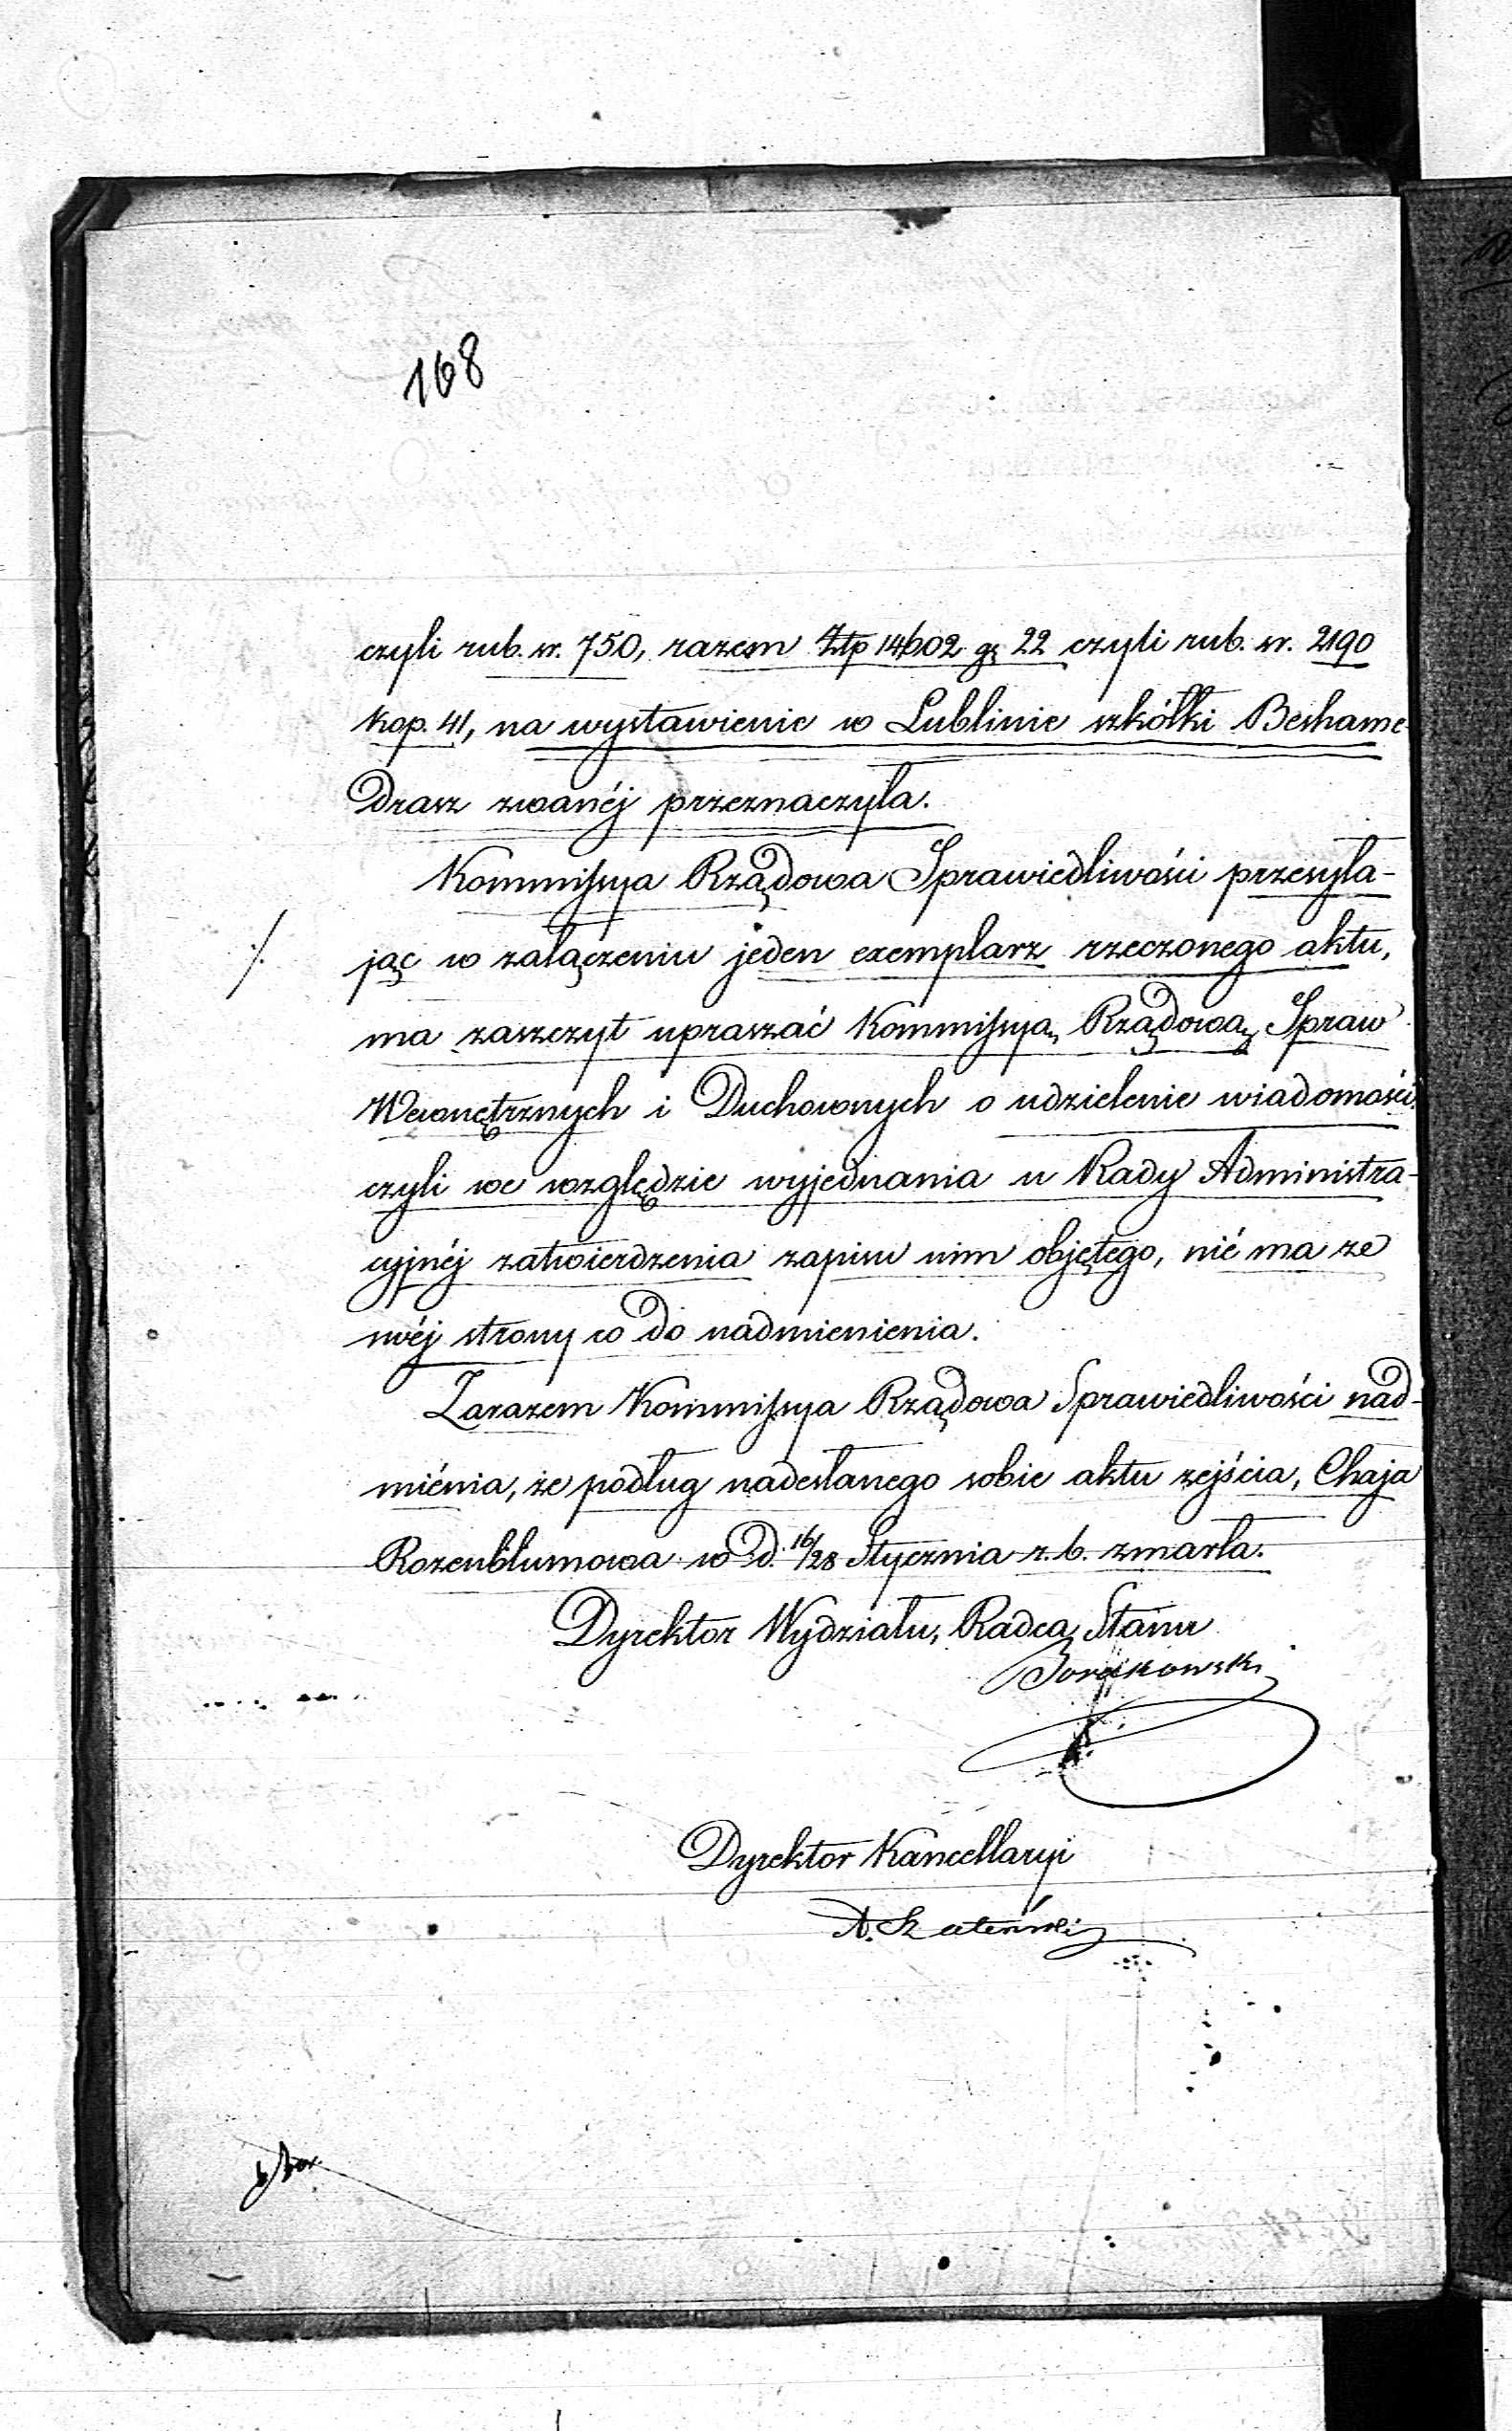 168
czyli rub. sr. 750, razem Złp 14602 gr 22 czyli rub. sr. 2190
kop. 41, na wystawienie w Lublinie szkółki Beshame-
Drasz zwanéj przeznaczyła.
Kommissya Rządowa Sprawiedliwości przesyła-
jąc w załączeniu jeden exemplarz rzeczonego aktu,
ma zaszczyt upraszać Kommissyą Rządową Spraw
Wewnętrznych i Duchownych o udzielenie wiadomości
czyli we względzie wyjednania u Rady Administra-
cyjnéj zatwierdzenia zapisu nim objętego, nié ma ze
swéj strony co do nadmienienia.
Zarazem Kommissya Rządowa Sprawiedliwości nad-
miénia, że podług nadesłanego sobie aktu zejścia, Chaja
Rozenblumowa w d. 16/28 Stycznia r. b. zmarła.
Dyrektor Wydziału, Radca Stanu
Dyrektor Kancellaryi